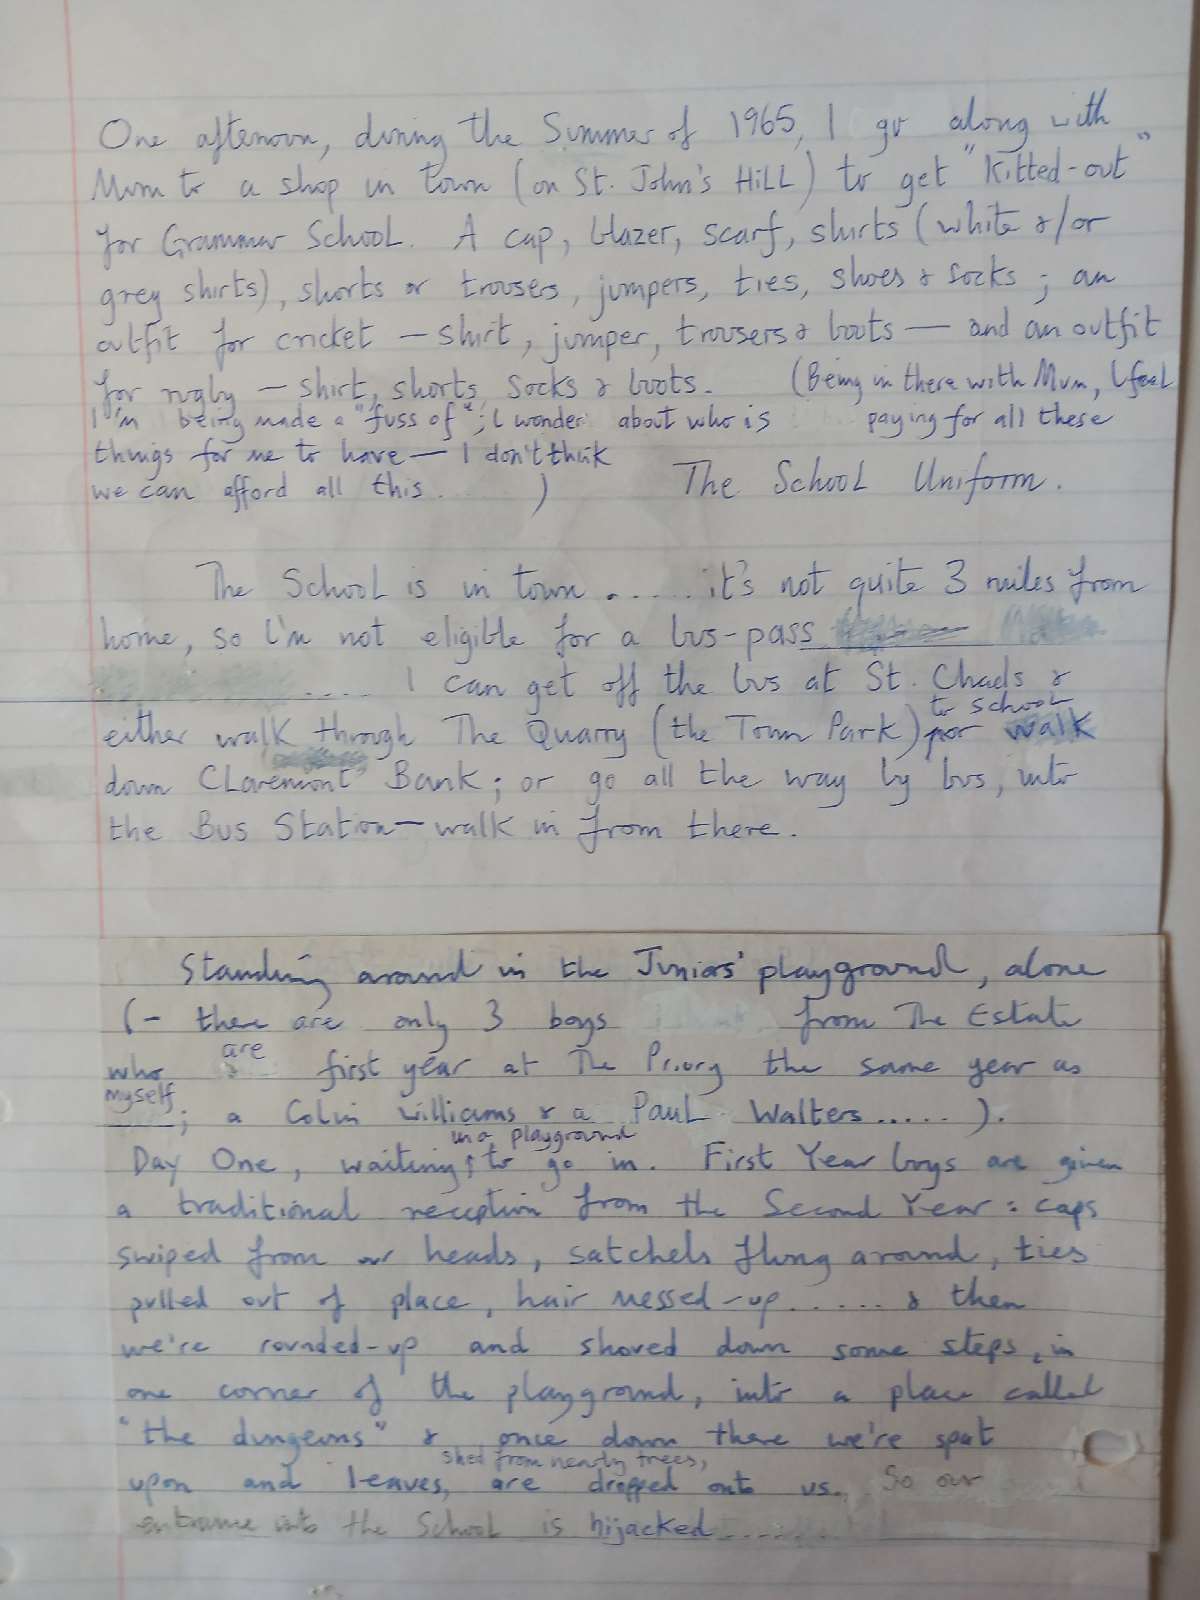 One afternoon, during the Summer of 1965, I go along with
Mum to a shop in town (on St. John's Hill) to get "Kitted-out"
for Grammar School. A cap, blazer, scarf, shirts (white &/or
grey shirts), shorts or trousers, jumpers, ties, shoes & socks; an
outfit for cricket — shirt, jumper, trousers & boots — and an outfit
for rugby — shirt, shorts, socks & boots. (Being in there with Mum, I feel
I'm being made a "fuss of"; I wonder about who is paying for all these
things for me to have — I don't think
we can afford all this ..... )
The School Uniform.
The School is in town ...... it's not quite 3 miles from
home, so I'm not eligible for a bus-pass
.... I can get off the bus at St. Chads &
to school
either walk through The Quarry (the Town Park) or walk
down Claremont Bank; or go all the way by bus, into
the Bus Station — walk in from there.
Standing around in the Juniors' playground, alone
(- there are only 3 boys from The Estate
are
who first year at The Priory the same year as
myself; a Colin Williams & a Paul Walters ..... ).
in a playground
Day One, waiting to go in. First Year boys are given
a traditional reception from the Second Year : caps
swiped from our heads, satchels flung around, ties
pulled out of place, hair messed-up ...... & then
we're rounded-up and shoved down some steps, in
one corner of the playground, into a place called
"the dungeons" & once down there we're spat
shed from nearby trees,
upon and leaves, are dropped onto us. So our
entrance into the School is hijacked ........